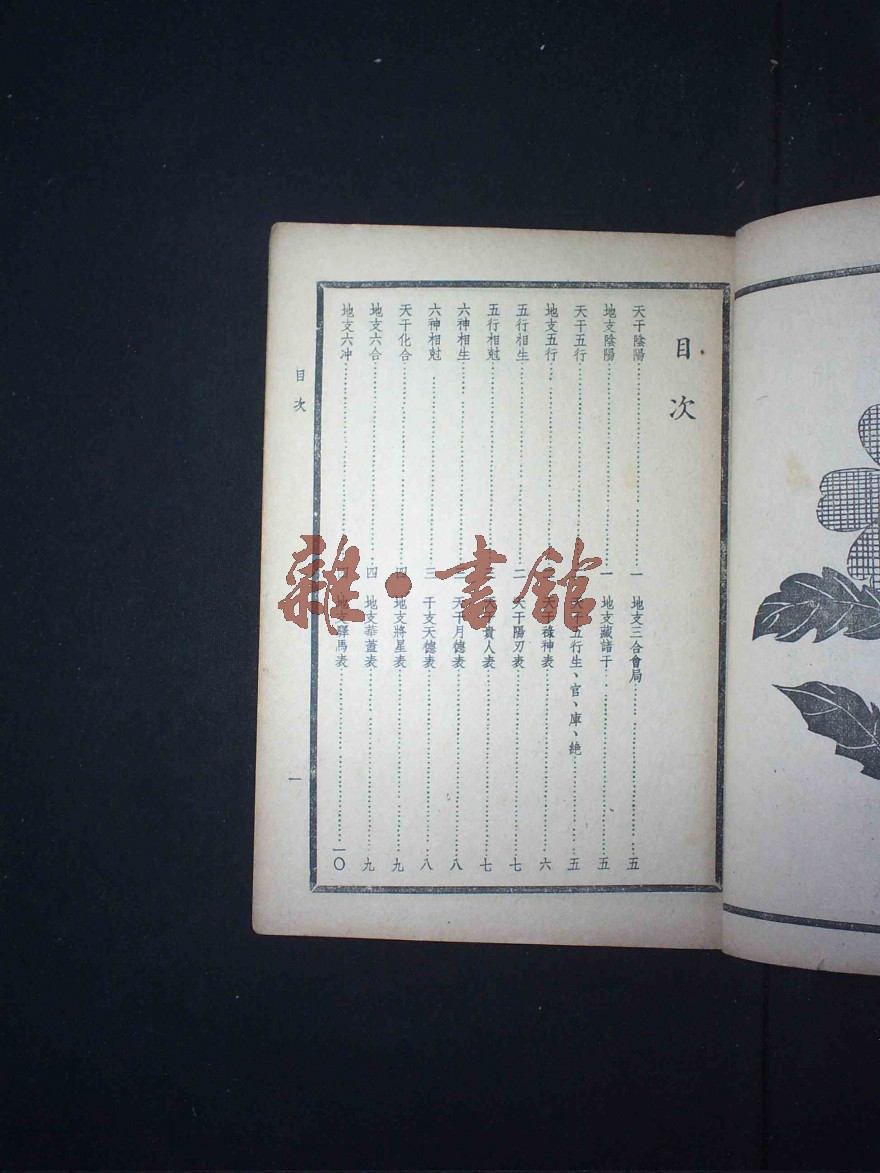 目次
天干陰陽……一
地支陰陽……一
天干五行……
地支五行……
五行相生……二
五行相尅……
六神相生……
六神相尅……三
天干化合……四
地支六合……四
地支六冲……四
地支三合會局……五
地支藏諸干……五
天干五行生、官、庫、絶……五
天干祿神表……六
天干陽刃表……七
天干貴人表……七
天干月德表……八
干支天德表……八
地支將星表……九
地支華蓋表……九
地支驛馬表……一〇
目次
一
雜·書館